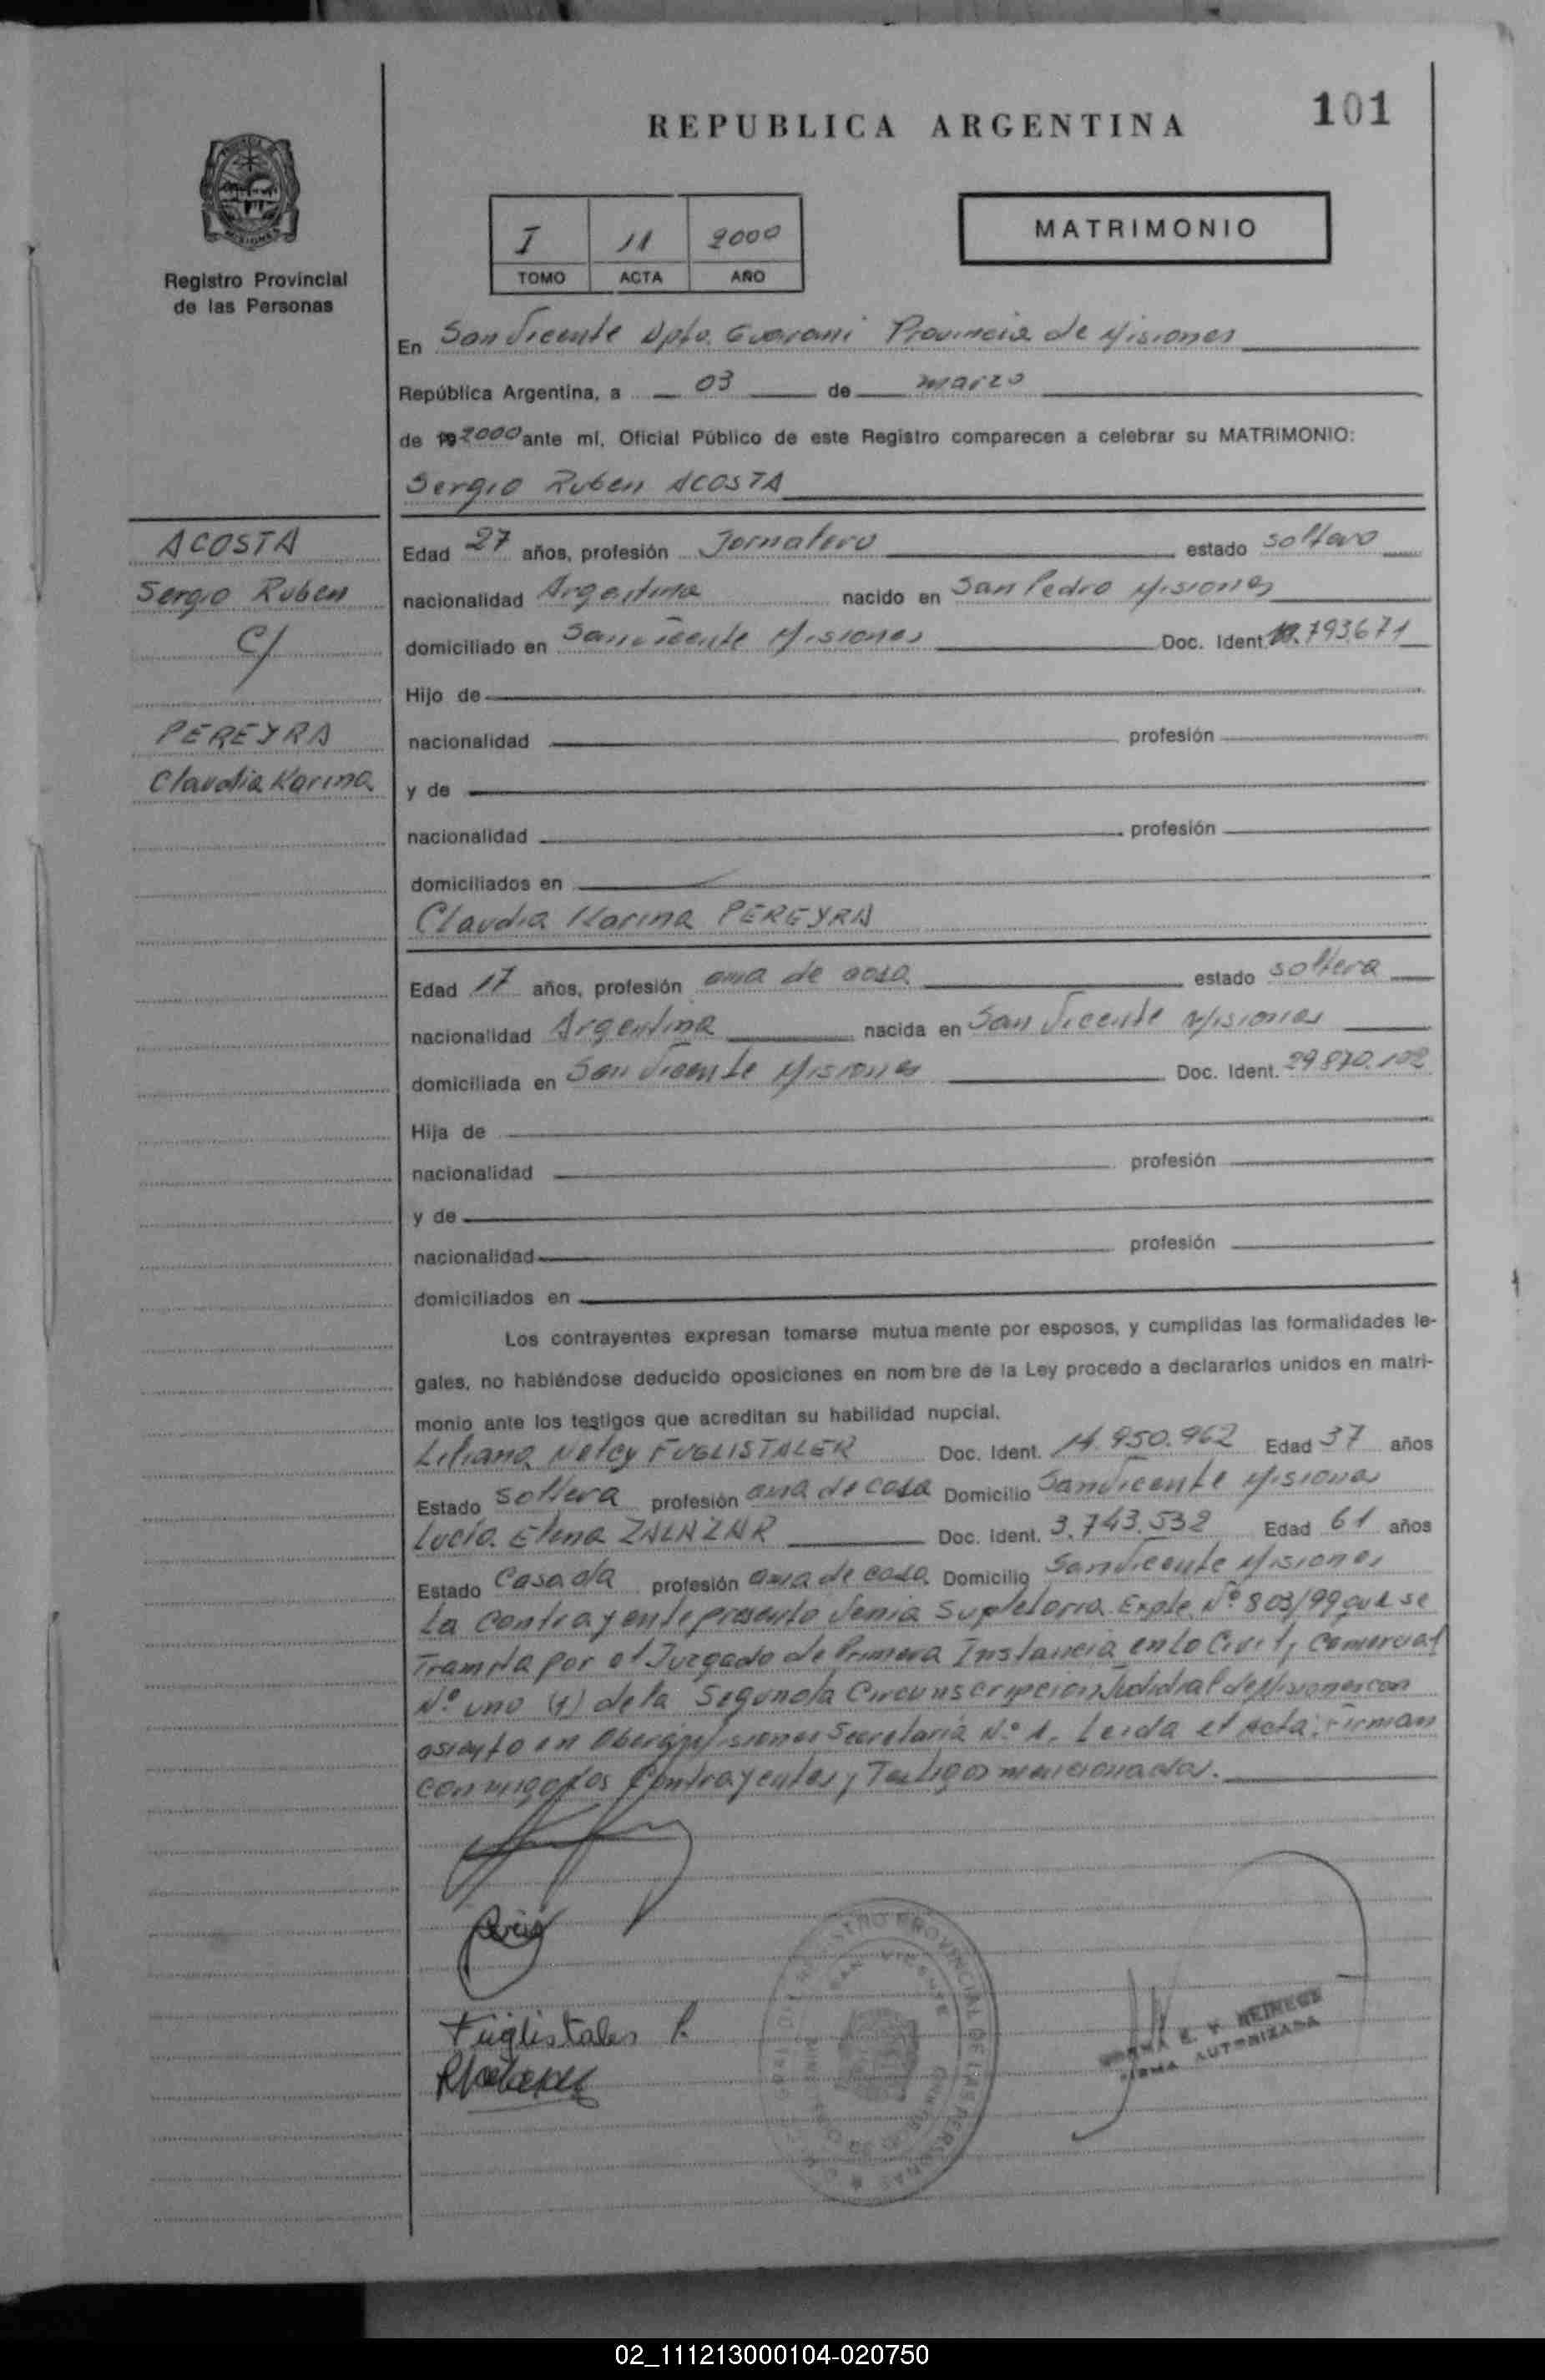 REPUBLICA ARGENTINA
101
Registro Provincial
de las Personas
I 11 2000
TOMO ACTA AÑO
MATRIMONIO
En San Vicente Dpto. Guarani Provincia de Misiones
República Argentina, a 03 de marzo
de 2000 ante mí, Oficial Público de este Registro comparecen a celebrar su MATRIMONIO:
Sergio Ruben ACOSTA
ACOSTA
Sergio Ruben
C/
PEREYRA
Claudia Karina
Edad 27 años, profesión Jornalero estado soltero
nacionalidad Argentina nacido en San Pedro Misiones
domiciliado en San Vicente Misiones Doc. Ident. 793.671
Hijo de
nacionalidad profesión
y de
nacionalidad profesión
domiciliados en
Claudia Karina PEREYRA
Edad 17 años, profesión ama de casa estado soltera
nacionalidad Argentina nacida en San Vicente Misiones
domiciliada en San Vicente Misiones Doc. Ident. 29.870.102
Hija de
nacionalidad profesión
y de
nacionalidad profesión
domiciliados en
Los contrayentes expresan tomarse mutua mente por esposos, y cumplidas las formalidades le-
gales, no habiéndose deducido oposiciones en nom bre de la Ley procedo a declararlos unidos en matri-
monio ante los testigos que acreditan su habilidad nupcial.
Liliana Nelcy FUGLISTALER Doc. Ident. 14.950.962 Edad 37 años
Estado soltera profesión ama de casa Domicilio San Vicente Misiones
Lucía Elena ZALAZAR Doc. Ident. 3.743.532 Edad 61 años
Estado Casada profesión ama de casa Domicilio San Vicente Misiones
La contrayente presento Venia Supletoria Expte. Nº 803/99 que se
Tramita por el Juzgado de Primera Instancia en lo Civil y Comercial
Nº uno (1) de la Segunda Circunscripcion Judicial de Misiones con
asiento en Oberá Misiones Secretaría Nº 1. Leida el Acta, Firman
conmigo los Contrayentes y Testigos mencionados.
Fuglistaler
REGISTRO PROVINCIAL DE LAS PERSONAS
SAN VICENTE
E. V. REINECK
FIRMA AUTORIZADA
02_111213000104-020750